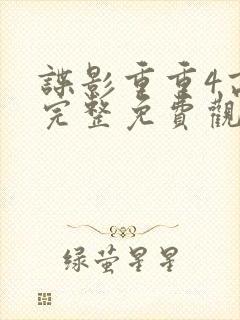 諜影重重4高
完整免費觀
绿萤星星